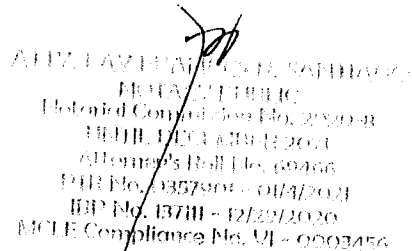 NOTARY PUBLIC
Notarial Commission No.
UNTIL DECEMBER 2021
Attorney's Roll No. 69466
PTR No. 0357901 - 01/4/2021
IBP No. 137111 - 12/29/2020
MCLE Compliance No. VI - 0003456